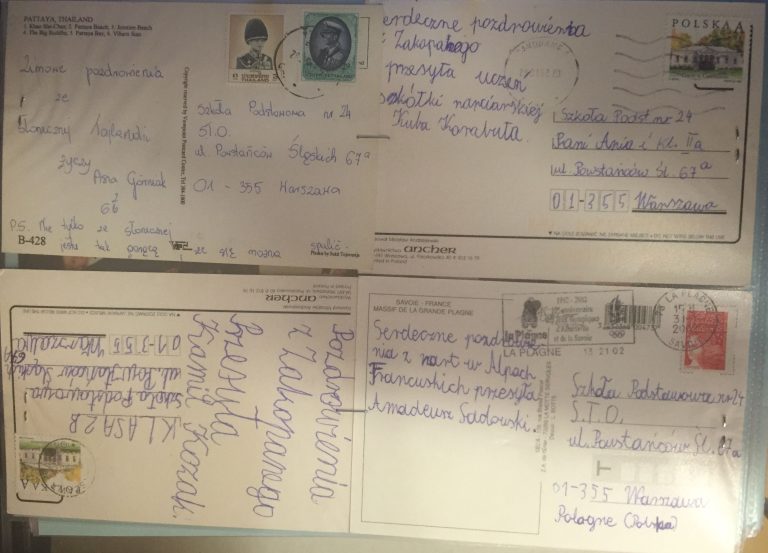 PATTAYA, THAILAND
1. Khao Mai-Chae, 2. Pattaya Beach, 3. Jomtien Beach
4. The Big Buddha, 5. Pattaya Bay, 6. Viharn Sian
Zimowe pozdrowienia
ze
słonecznej Tajlandii
życzy
Asia Górniak
6b
P.S. Nie tylko ze słonecznej
jest tak gorąco że się można spalić.
B-428
THAILAND
Szkoła Podstawowa nr 24
STO.
ul. Powstańców Śląskich 67a
01-355 Warszawa
Serdeczne pozdrowienia
z Zakopanego
przesyła uczeń
szkółki narciarskiej
Kuba Karabuła.
POLSKA
ZAKOPANE
Szkoła Podst. nr 24
Pani Ania i kl. IIa
ul. Powstańców Śl. 67a
01-355 Warszawa
ancher
Pozdrowienia
z Zakopanego
Przesyła
Kamil Kozak
KLASA 2B
Szkoła Podstawowa
ul. Powstańców Śląskich 67A
01-355 Warszawa
ancher
POLSKA
SAVOIE - FRANCE
MASSIF DE LA GRANDE PLAGNE
Serdeczne pozdrowie-
nia z nart w Alpach
Francuskich przesyła
Amadeusz Sadowski.
1992-2002
anniversaire
des Jeux Olympiques
d'Albertville
et de la Savoie
la Plagne
LA PLAGNE
13 21 02
LA PLAGNE
SAVOIE
Szkoła Podstawowa nr 24
S.T.O.
ul. Powstańców Śl. 67a
01-355 Warszawa
Pologne (Polska)